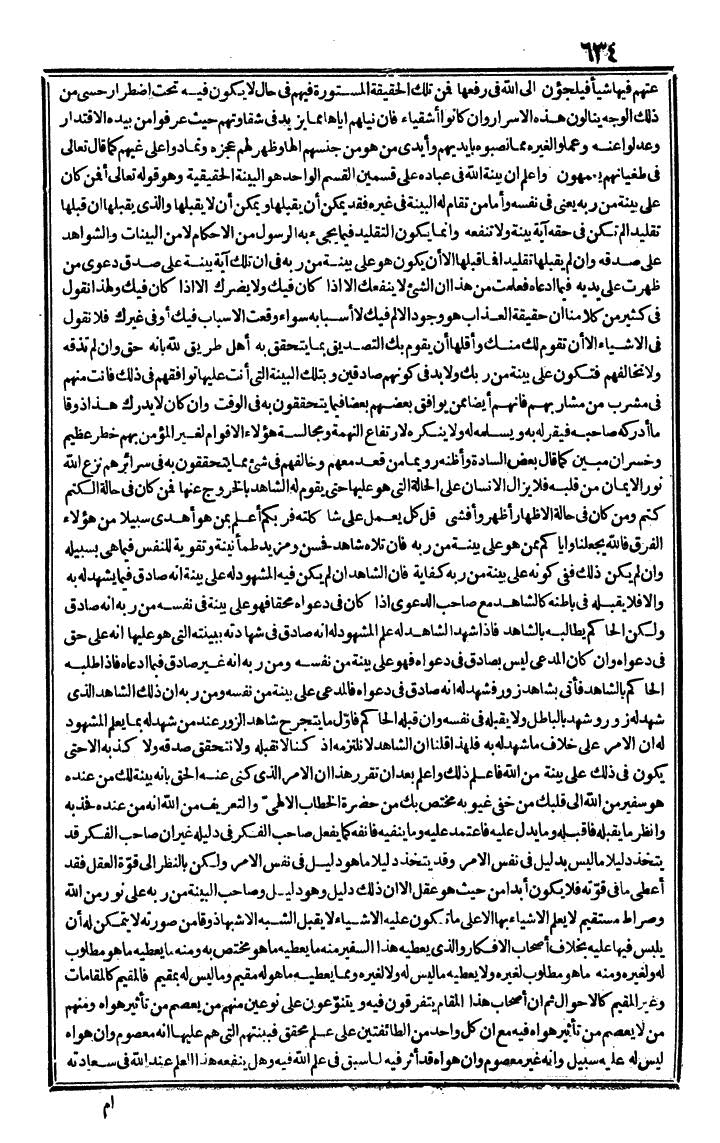 ٦٣٤
عنهم فيها شيأ فيلجؤن الى الله فى رفعها فمن تلك الحقيقة المستورة فيهم فى حال لا يكون فيه تحت اضطرار حسى من
ذلك الوجه ينالون هذه الاسرار وان كانوا أشقياء فان نيلهم اياها مما يزيد فى شقاوتهم حيث عرفوا من بيده الاقتدار
وعدلوا عنه وعملوا لغيره مما نصبوه بايديهم وأيدى من هو من جنسهم الها وظهر لهم عجزه وتمادوا على غيهم كما قال تعالى
فى طغيانهم يعمهون واعلم ان بينة الله فى عباده على قسمين القسم الواحد هو البينة الحقيقية وهو قوله تعالى أفمن كان
على بينة من ربه يعنى فى نفسه وأما من تقام له البينة فى غيره فقد يمكن أن يقبلها ويمكن أن لا يقبلها والذى يقبلها ان قبلها
تقليدا لم تكن فى حقه آية بينة ولا تنفعه وانما يكون التقليد فيما يجىء به الرسول من الاحكام لا من البينات والشواهد
على صدقه وان لم يقبلها تقليدا فما قبلها الا أن يكون هو على بينة من ربه فى ان تلك آية بينة على صدق دعوى من
ظهرت على يديه فيما ادعاه فعلمت من هذا ان الشئ لا ينفعك الا اذا كان فيك ولا يضرك الا اذا كان فيك ولهذا نقول
فى كثير من كلامنا ان حقيقة العذاب هو وجود الالم فيك لا أسبابه سواء وقعت الاسباب فيك أو فى غيرك فلا نقول
فى الاشياء الا أن تقوم لك منك وأقلها أن يقوم بك التصديق بما يتحقق به أهل طريق الله بانه حق وان لم تذقه
ولا تخالفهم فتكون على بينة من ربك ولا بد فى كونهم صادقين وبتلك البينة التى أنت عليها توافقهم فى ذلك فانت منهم
فى مشرب من مشاربهم فانهم أيضا ممن يوافق بعضهم بعضا فيما يتحققون به فى الوقت وان كان لا يدرك هذا ذوقا
ما أدركه صاحبه فيقر له به ويسلمه له ولا ينكره لارتفاع التهمة ومجالسة هؤلاء الاقوام لغير المؤمن بهم خطر عظيم
وخسران مبين كما قال بعض السادة وأظنه رويما من قعد معهم وخالفهم فى شئ مما يتحققون به فى سرائرهم نزع الله
نور الايمان من قلبه فلا يزال الانسان على الحالة التى هو عليها حتى يقوم له الشاهد بالخروج عنها فمن كان فى حالة الكتم
كتم ومن كان فى حالة الاظهار أظهر وأفشى قل كل يعمل على شاكلته فربكم أعلم بمن هو أهدى سبيلا من هؤلاء
الفرق فالله يجعلنا واياكم ممن هو على بينة من ربه فان تلاه شاهد فحسن ومزيد طمأنينة وتقوية للنفس فيما هى بسبيله
وان لم يكن ذلك ففى كونه على بينة من ربه كفاية فان الشاهد ان لم يكن فيه المشهود له على بينة انه صادق فيما يشهد له به
والا فلا يقبله فى باطنه كالشاهد مع صاحب الدعوى اذا كان فى دعواه محقا فهو على بينة فى نفسه من ربه انه صادق
ولكن الحاكم يطالبه بالشاهد فاذا شهد الشاهد له علم المشهود له انه صادق فى شهادته ببينته التى هو عليها انه على حق
فى دعواه وان كان المدعى ليس بصادق فى دعواه فهو على بينة من نفسه ومن ربه انه غير صادق فيما ادعاه فاذا طلبه
الحاكم بالشاهد فأتى بشاهد زور فشهد له انه صادق فى دعواه فالمدعى على بينة من نفسه ومن ربه ان ذلك الشاهد الذى
شهد له زور وشهد بالباطل ولا يقبله فى نفسه وان قبله الحاكم فاوّل ما يتجرح شاهد الزور عند من شهد له بما يعلم المشهود
له ان الامر على خلاف ما شهد له به فلهذا قلنا ان الشاهد لا نلتزمه اذ كنا لا نقبله ولا نتحقق صدقه ولا كذبه الا حتى
يكون فى ذلك على بينة من الله فاعلم ذلك واعلم بعد ان تقرر هذا ان الامر الذى كنى عنه الحق بانه بينة لك من عنده
هو سفير من الله الى قلبك من خفى غيوبه مختص بك من حضرة الخطاب الالهىّ والتعريف من الله انه من عنده فخذ به
وانظر ما يقبله فاقبله وما يدل عليه فاعتمد عليه وما ينفيه فانفه كما يفعل صاحب الفكر فى دليله غير ان صاحب الفكر قد
يتخذ دليلا ما ليس بدليل فى نفس الامر وقد يتخذ دليلا ما هو دليل فى نفس الامر ولكن بالنظر الى قوّة العقل فقد
أعطى ما فى قوّته فلا يكون أبدا من حيث هو عقل الا ان ذلك دليل وهو دليل وصاحب البينة من ربه على نور من الله
وصراط مستقيم لا يعلم الاشياء بها الا على ما تكون عليه الاشياء لا يقبل الشبه الا شبها ذوقا من صورته لا يتمكن له أن
يلبس فيها عليه بخلاف أصحاب الافكار والذى يعطيه هذا السفير منه ما يعطيه ما هو مختص به ومنه ما يعطيه ما هو مطلوب
له ولغيره ومنه ما هو مطلوب لغيره ولا يعطيه ما ليس له ولا لغيره ومما يعطيه ما هو له مقيم وما ليس له بمقيم فالمقيم كالمقامات
وغير المقيم كالاحوال ثم ان أصحاب هذا المقام يتفرقون فيه ويتنوّعون على نوعين منهم من يعصم من تأثير هواه ومنهم
من لا يعصم من تأثير هواه فيه مع ان كل واحد من الطائفتين على علم محقق فبينتهم التى هم عليها انه معصوم وان هواه
ليس له عليه سبيل وانه غير معصوم وان هواه قد أثر فيه لما سبق فى علم الله فيه وهل ينفعه هذا العلم عند الله فى سعادته
ام